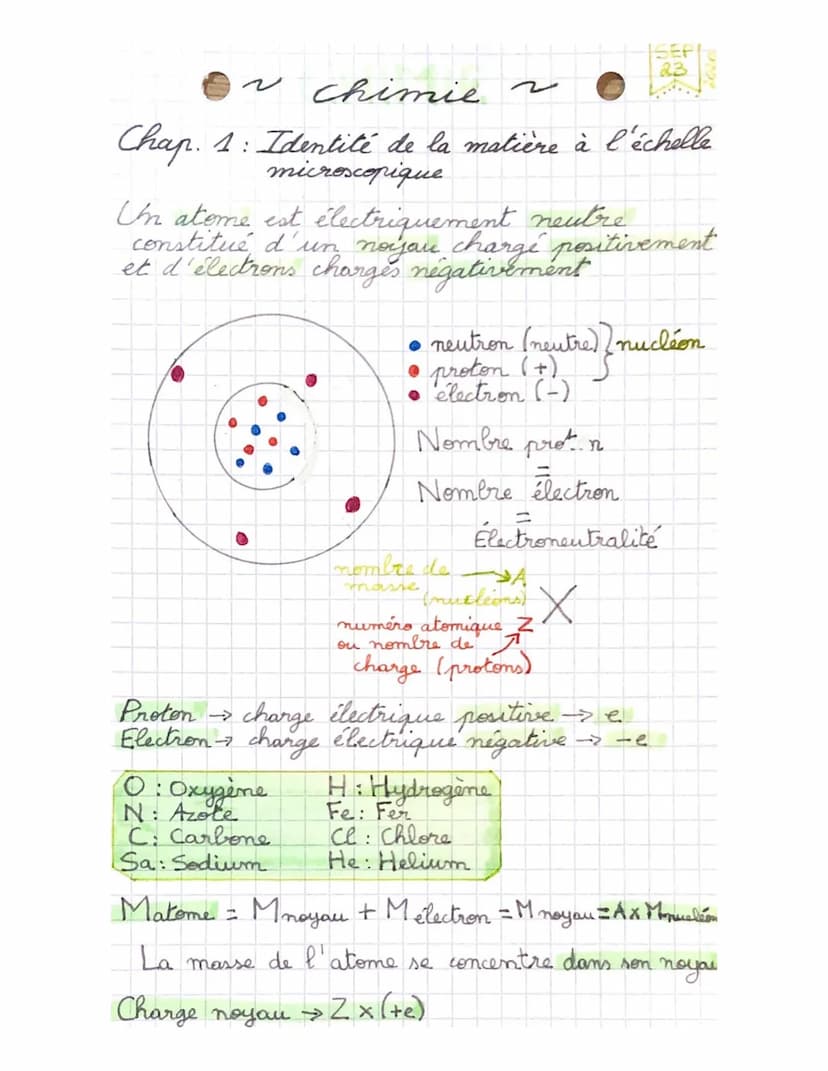 SEP
23
~ chimie ~
Chap. 1 : Identité de la matière à l'échelle
microscopique
Un atome est électriquement neutre
constitué d'un noyau chargé positivement
et d'électrons chargés négativement
neutron (neutre) } nucléon
proton (+)
électron (-)
Nombre prot. n
=
Nombre électron
=
Électroneutralité
nombre de → A
masse
(nucléons)
X
numéro atomique Z
ou nombre de
charge (protons)
Proton → charge électrique positive → e
Electron → charge électrique négative → -e
O : Oxygène H : Hydrogène
N : Azote Fe : Fer
C : Carbone Cl : Chlore
Sa : Sodium He : Helium
Matome = Mnoyau + M électron = M noyau = A x Mnucléon
La masse de l'atome se concentre dans son noyau
Charge noyau → Z x (+e)